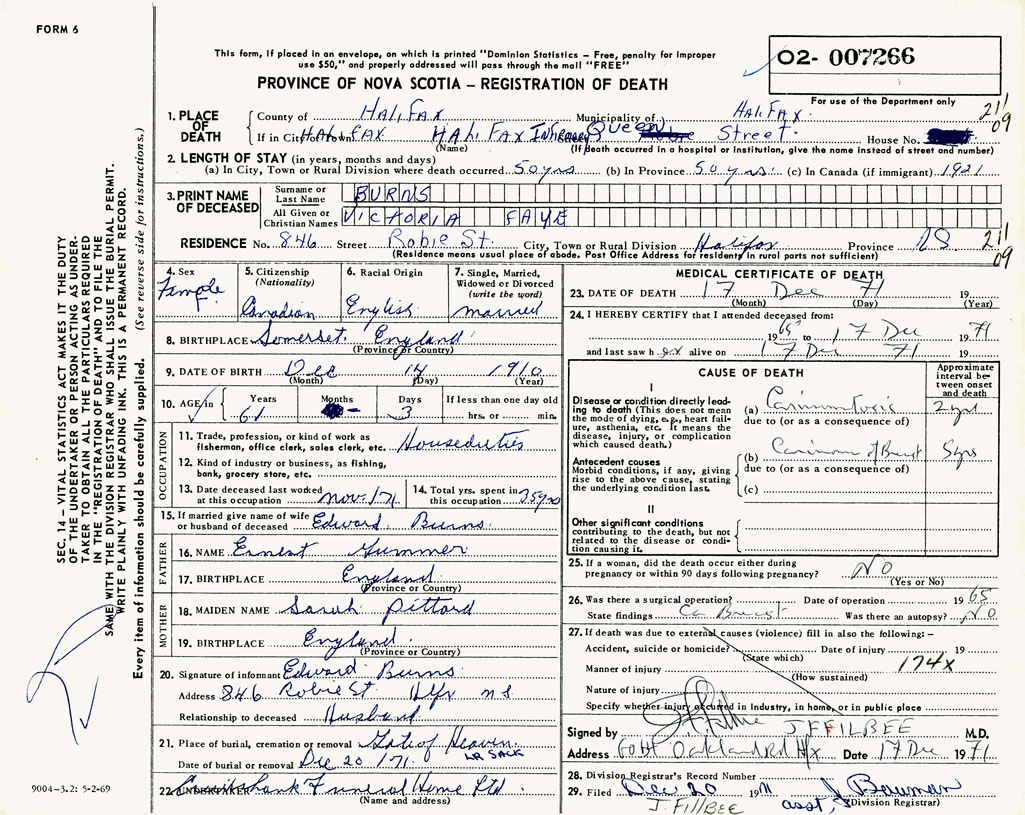 FORM 6
This form, if placed in an envelope, on which is printed "Dominion Statistics – Free, penalty for improper
use $50," and properly addressed will pass through the mail "FREE"
02- 007266
PROVINCE OF NOVA SCOTIA – REGISTRATION OF DEATH
For use of the Department only
211
09
1. PLACE OF DEATH
County of HALIFAX Municipality of HALIFAX
If in City or Town HALIFAX HALIFAX Infirmary Queen Street House No.
(Name) (If death occurred in a hospital or institution, give the name instead of street and number)
2. LENGTH OF STAY (in years, months and days)
(a) In City, Town or Rural Division where death occurred 50 yrs (b) In Province 50 yrs. (c) In Canada (if immigrant) 1921
3. PRINT NAME OF DECEASED
Surname or Last Name BURNS
All Given or Christian Names VICTORIA FAYE
RESIDENCE No. 846 Street Robie St. City, Town or Rural Division Halifax Province NS
(Residence means usual place of abode. Post Office Address for residents in rural parts not sufficient)
211
09
4. Sex Female
5. Citizenship (Nationality) Canadian
6. Racial Origin English
7. Single, Married, Widowed or Divorced (write the word) married
8. BIRTHPLACE Somerset. England
(Province or Country)
9. DATE OF BIRTH Dec 14 1910
(Month) (Day) (Year)
10. AGE in Years 61 Months - Days 3 If less than one day old hrs. or min.
OCCUPATION
11. Trade, profession, or kind of work as fisherman, office clerk, sales clerk, etc. Houseduties
12. Kind of industry or business, as fishing, bank, grocery store, etc.
13. Date deceased last worked at this occupation Nov. 171 14. Total yrs. spent in this occupation 35 yrs
15. If married give name of wife or husband of deceased Edward Burns
FATHER
16. NAME Ernest Gummer
17. BIRTHPLACE England
(Province or Country)
MOTHER
18. MAIDEN NAME Sarah Pittard
19. BIRTHPLACE England
(Province or Country)
20. Signature of informant Edward Burns
Address 846 Robie St Hlfx N S
Relationship to deceased Husband
21. Place of burial, cremation or removal Gate of Heaven
LR SACK
Date of burial or removal Dec 20 /71
22. UNDERTAKER Cruikshank Funeral Home Ltd
(Name and address)
MEDICAL CERTIFICATE OF DEATH
23. DATE OF DEATH 17 Dec 71 19
(Month) (Day) (Year)
24. I HEREBY CERTIFY that I attended deceased from:
1965 to 17 Dec 1971
and last saw her alive on 17 Dec 71 19
CAUSE OF DEATH
Approximate interval between onset and death
I
Disease or condition directly leading to death (This does not mean the mode of dying, e.g., heart failure, asthenia, etc. It means the disease, injury, or complication which caused death.)
(a) Carcinomatosis 2 yrs
due to (or as a consequence of)
Antecedent causes
Morbid conditions, if any, giving rise to the above cause, stating the underlying condition last.
(b) Carcinoma of Breast 5 yrs
due to (or as a consequence of)
(c)
II
Other significant conditions contributing to the death, but not related to the disease or condition causing it.
25. If a woman, did the death occur either during pregnancy or within 90 days following pregnancy? NO
(Yes or No)
26. Was there a surgical operation? Date of operation 1965
State findings Ca Breast Was there an autopsy? NO
27. If death was due to external causes (violence) fill in also the following:–
Accident, suicide or homicide? Date of injury 19
(State which)
Manner of injury 174x
(How sustained)
Nature of injury
Specify whether injury occurred in Industry, in home, or in public place
Signed by J F FILBEE M.D.
Address 6044 Oakland Rd Hfx Date 17 Dec 1971
28. Division Registrar's Record Number
29. Filed Dec 20 1971 J Bauman
J. FillBEE asst, Division Registrar)
SEC. 14 – VITAL STATISTICS ACT MAKES IT THE DUTY
OF THE UNDERTAKER OR PERSON ACTING AS UNDER-
TAKER TO OBTAIN ALL THE PARTICULARS REQUIRED
IN THE "REGISTRATION OF DEATH" AND TO FILE THE
SAME WITH THE DIVISION REGISTRAR WHO SHALL ISSUE THE BURIAL PERMIT.
WRITE PLAINLY WITH UNFADING INK. THIS IS A PERMANENT RECORD.
Every item of information should be carefully supplied. (See reverse side for instructions.)
9004-3.2: 5-2-69